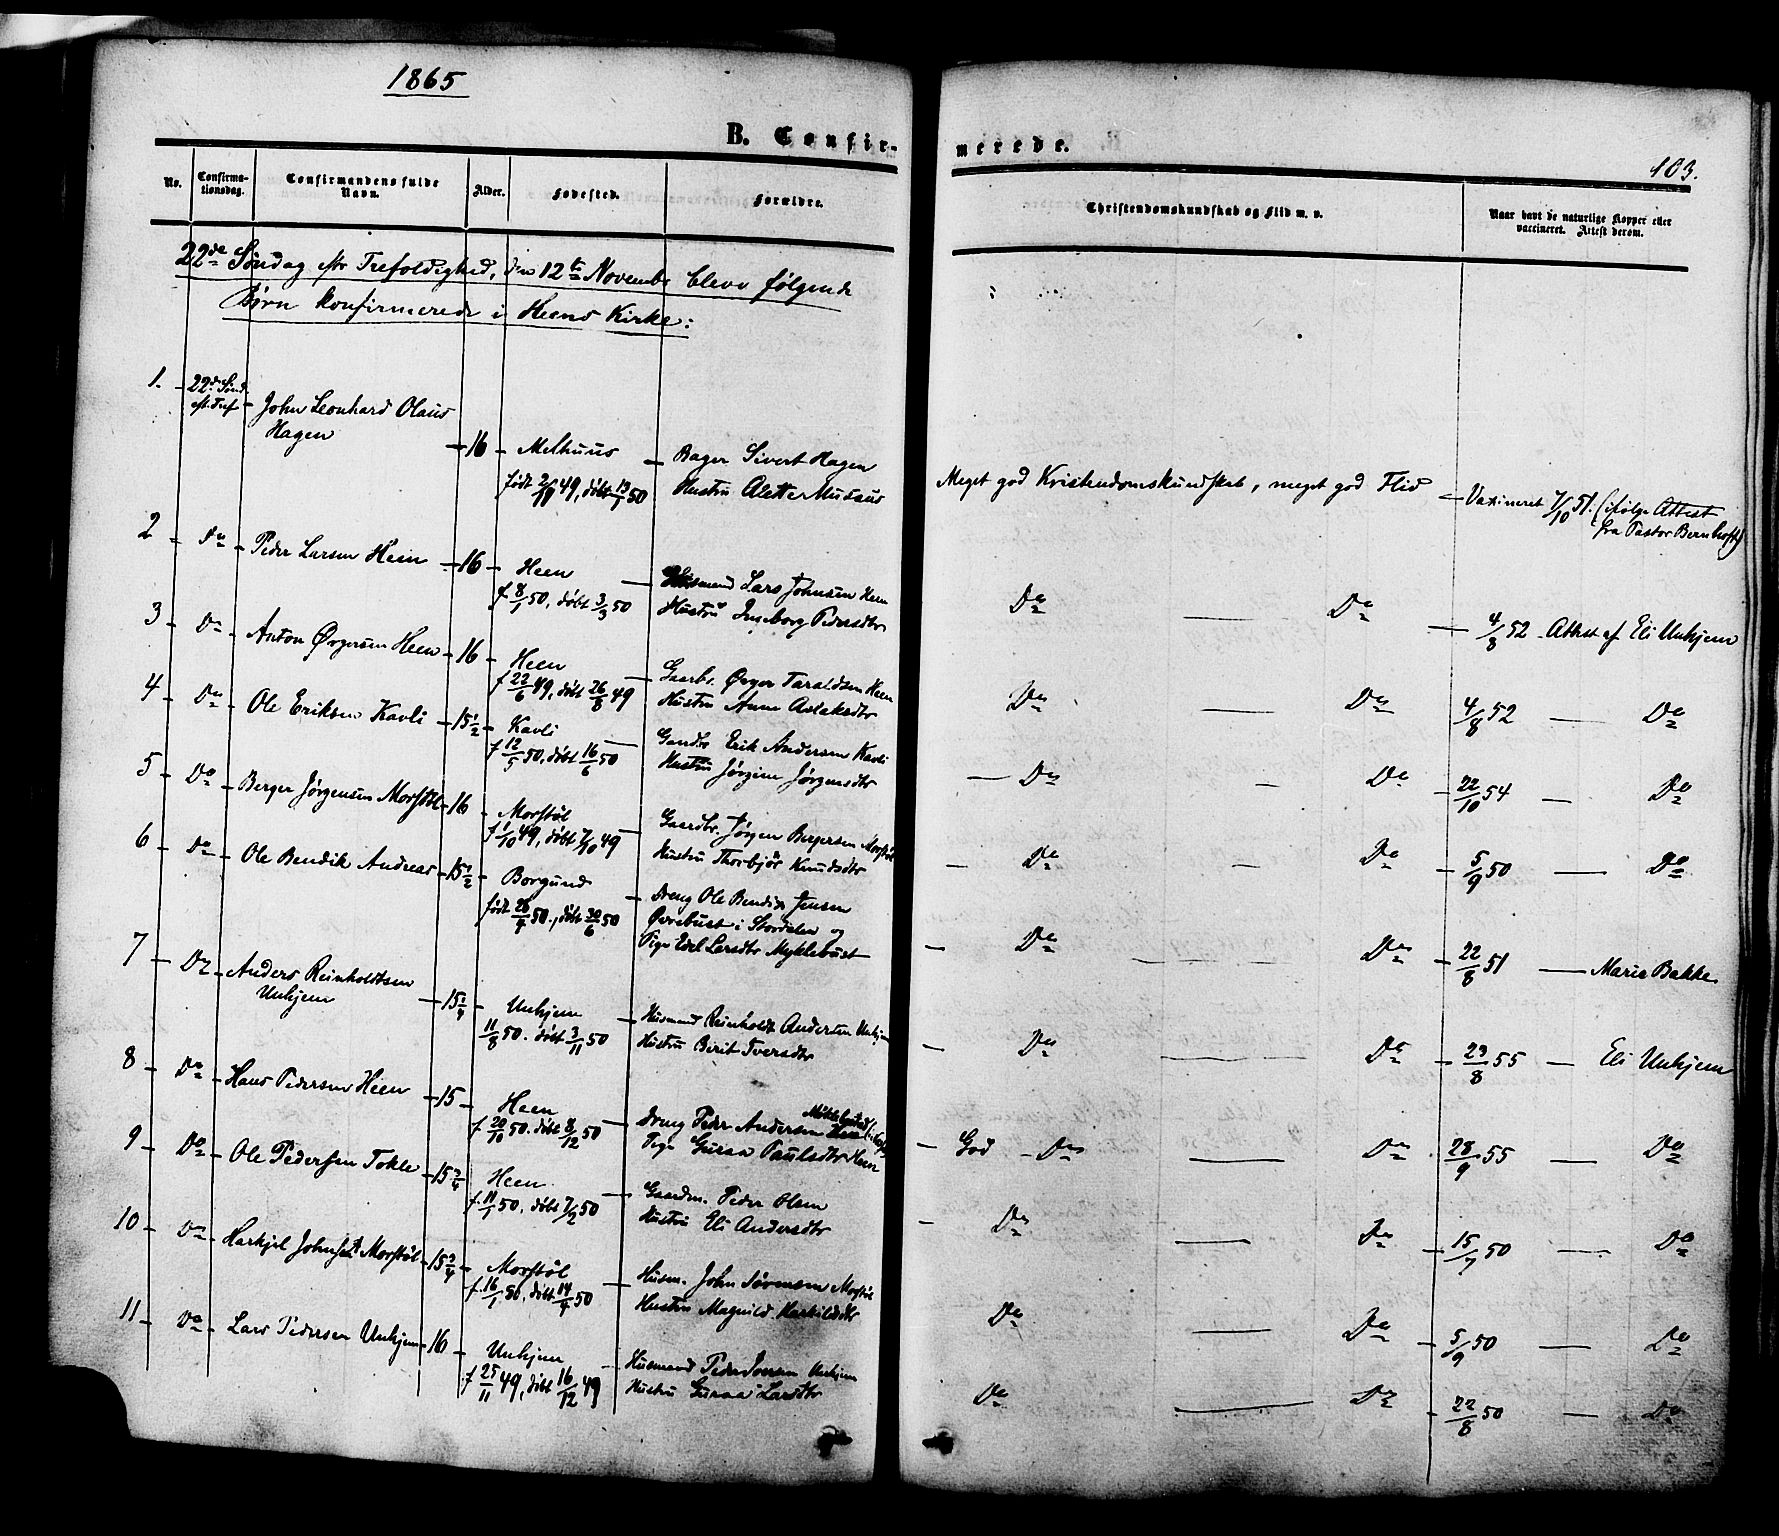 1865
B. Confir-
merede.
103.
No.
Confirma-
tionsdag.
Confirmandens fulde
Navn.
Alder.
Fødested.
Forældre.
Christendomskundskab og Flid m. v.
Naar havt de naturlige Kopper eller
vaccineret. Attest derom.
22de Søndag eftr Trefoldighed, den 12te Novembr bleve følgende
Børn konfirmerede i Heens Kirke:
1. 22de Sønd. John Leonhard Olaus
eft. Tref Hagen
16 Melhuus Bager Sivert Hagen
født 2/11 49, døbt 13/1 50 Hustru Alette Musæus
Meget god Kristendomskundskab, meget god Flid Vaxineret 7/10 51. (ifølge Attest
fra Pastor Bernhoft)
2 Do Peder Larsen Heen 16 Heen Husmand Lars Johnsen Heen
f 8/1 50, døbt 3/3 50 Hustru Ingeborg Pedersdtr
Do Do 4/8 52 Attest af Eli Unhjem
3 Do Anton Ørgersen Heen 16 Heen Gaarbr. Ørger Taraldsen Heen
f 22/6 49, døbt 26/8 49 Hustru Anne Aslaksdtr
Do Do 4/8 52 Do
4 Do Ole Eriksen Kavli 15 1/2 Kavli Gaardbr Erik Andersen Kavli
f 12/5 50, døbt 16/6 50 Hustru Jørgine Jørgensdtr
Do Do 22/10 54 Do
5 Do Berger Jørgensen Morstøl 16 Morstøl Gaardbr. Jørgen Bergersen Morstøl
f 1/10 49, døbt 7/10 49 Hustru Thorbjør Knudsdtr
Do Do 5/9 50 Do
6 Do Ole Bendik Andreas 15 1/2 Borgund Dreng Ole Bendix Jensen
født 26/4 50., døbt 30/6 50 Øvrebust i Stordalen og
Pige Edel Larsdtr Myklebust
Do Do 22/8 51 Maria Bakke
7 Do Anders Reinholdtsen
Unhjem
15 1/4 Unhjem Husmand Reinholdt Andersen Unhjem
11/8 50. døbt 3/11 50 Hustru Birit Iversdtr
Do Do 29/8 55 Eli Unhjem
8 Do Hans Pedersen Heen 15 Heen Dreng Peder Andersen
f 20/10 50. døbt 8/12 50 Pige Guraa Paulsdtr Heen
God Do Do 28/9 55 Do
9 Do Ole Pedersen Tokle 15 3/4 Heen Gaardm. Peder Olsen
f. 11/1 50, døbt 7/2 50 Hustru Eli Andersdtr
Do Do 15/7 50 Do
10 Do Harkjel Johnsen Morstøl 15 3/4 Morstøl Husm. John Sørensen Morstøl
f. 16/1 50, døbt 14/4 50 Hustru Magnild Harkildsdtr
Do Do 5/9 50 Do
11 Do Lars Pedersen Unhjem 16 Unhjem Husmand Peder Jonsen Unhjem
f 25/11 49, døbt 16/12 49 Hustru Guraa Larsdtr
Do Do 22/8 50 Do